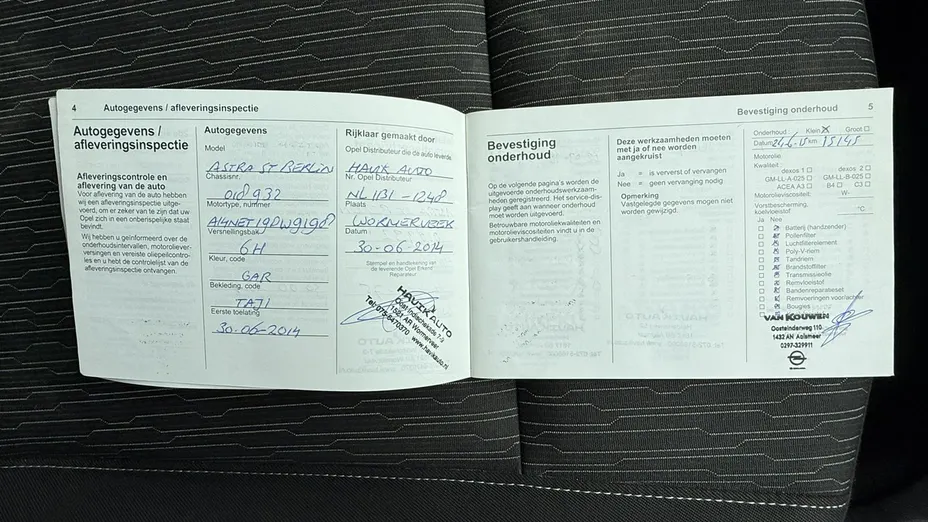 4 Autogegevens / afleveringsinspectie
Autogegevens /
afleveringsinspectie
Afleveringscontrole en
aflevering van de auto
Voor aflevering van de auto hebben
wij een afleveringsinspectie uitge-
voerd, om er zeker van te zijn dat uw
Opel zich in een onberispelijke staat
bevindt.
Wij hebben u geïnformeerd over de
onderhoudsintervallen, motoroliever-
versingen en vereiste oliepeilcontro-
les en u hebt de controlelijst van de
afleveringsinspectie ontvangen.
Autogegevens
Model
ASTRA ST BERLIN
Chassisnr.
018932
Motortype, nummer
Versnellingsbak
6H
Kleur, code
GAR
Bekleding, code
TAJI
Eerste toelating
30-06-2014
Rijklaar gemaakt door
Opel Distributeur die de auto leverde
HAVIK AUTO
Nr. Opel Distributeur
NL 1B1 - 1248
Plaats
WORMERVEER
Datum
30-06-2014
Stempel en handtekening van
de leverende Opel Erkend
Reparateur
HAVIK AUTO
Oost Indischekade 7-9
1521 AR Wormerveer
Tel: 075-6470370 www.havikauto.nl
Bevestiging onderhoud 5
Bevestiging
onderhoud
Op de volgende pagina's worden de
uitgevoerde onderhoudswerkzaam-
heden geregistreerd. Het service-dis-
play geeft aan wanneer onderhoud
moet worden uitgevoerd.
Betrouwbare motoroliekwaliteiten en
motorolieviscositeiten vindt u in de
gebruikershandleiding.
Deze werkzaamheden moeten
met ja of nee worden
aangekruist
Ja = is ververst of vervangen
Nee = geen vervanging nodig
Opmerking
Vastgelegde gegevens mogen niet
worden gewijzigd.
Onderhoud: Klein Groot
Datum 24-6-15 km 15145
Motorolie
Kwaliteit: dexos 1 dexos 2
GM-LL-A-025 GM-LL-B-025
ACEA A3 B4 C3
Motorolieviscositeit: W-
Vorstbescherming,
koelvloeistof °C
Ja Nee
Batterij (handzender)
Pollenfilter
Luchtfilterelement
Poly-V-riem
Tandriem
Brandstoffilter
Transmissieolie
Remvloeistof
Bandenreparatieset
Remvoeringen voor/achter
Bougies
VAN KOUWEN
Oosteinderweg 110
1432 AN Aalsmeer
0297-329911